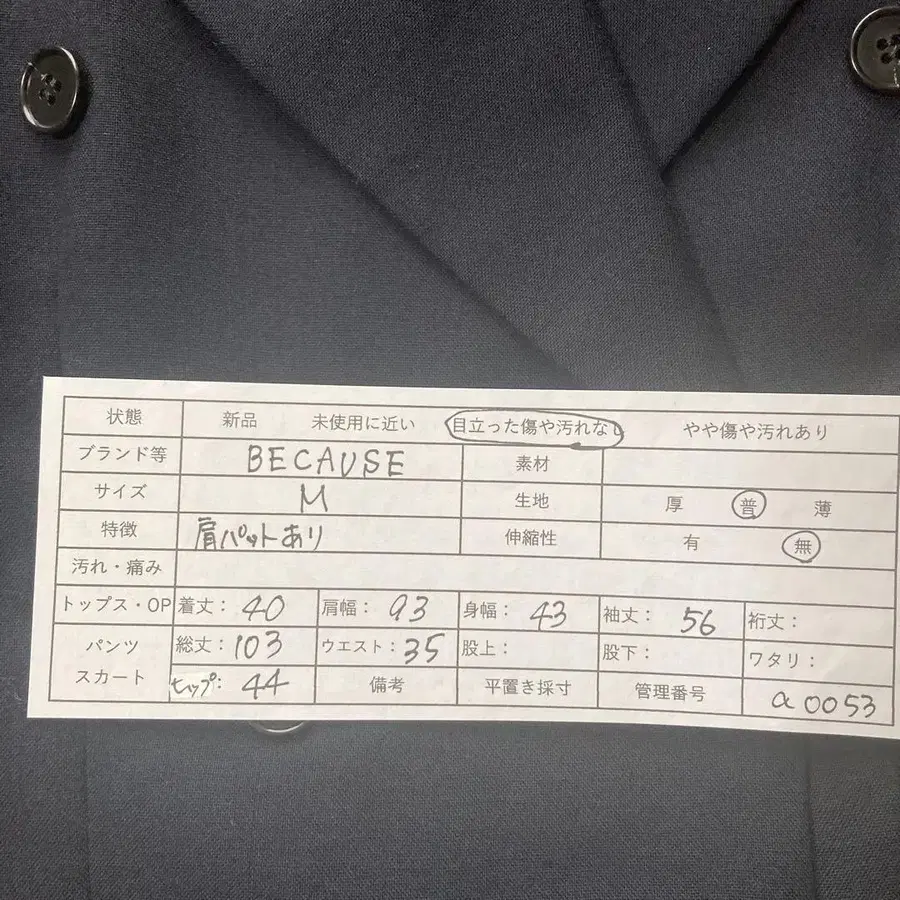 状態 新品 未使用に近い 目立った傷や汚れなし やや傷や汚れあり
ブランド等 BECAUSE 素材
サイズ M 生地 厚 普 薄
特徴 肩パットあり 伸縮性 有 無
汚れ・痛み
トップス・OP 着丈: 40 肩幅: 93 身幅: 43 袖丈: 56 裄丈:
パンツ 総丈: 103 ウエスト: 35 股上: 股下: ワタリ:
スカート ヒップ: 44 備考 平置き採寸 管理番号 a0053